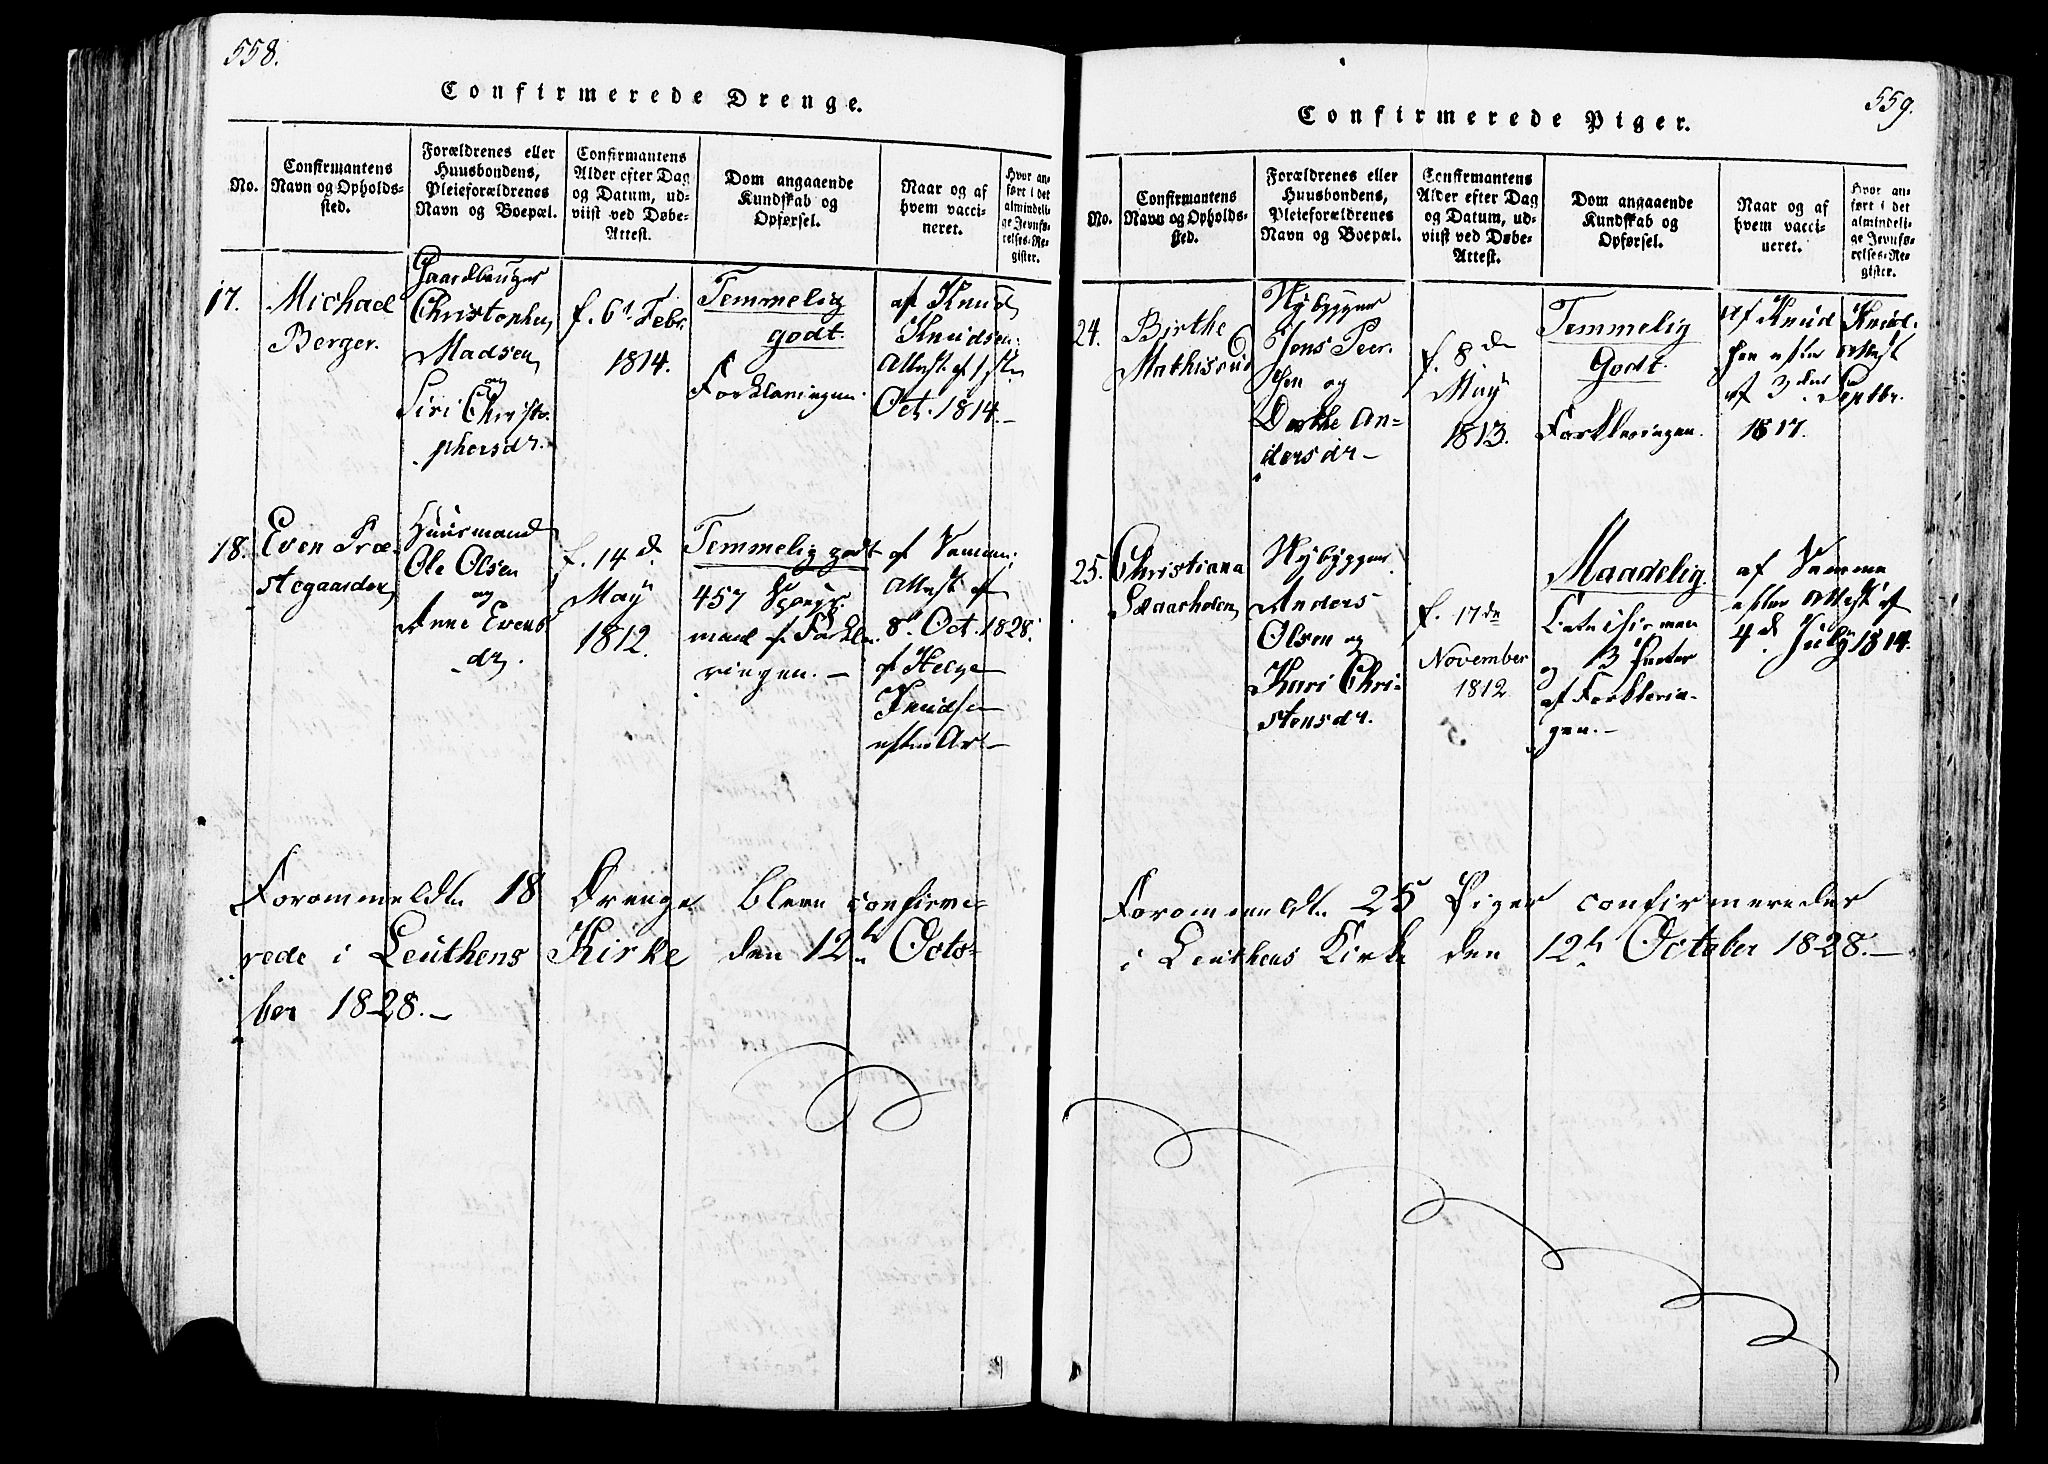 558.
Confirmerede Drenge.
No.
Confirmantens
Navn og Opholds-
sted.
Forældrenes eller
Huusbondens,
Pleieforældrenes
Navn og Boepæl.
Confirmantens
Alder efter Dag
og Datum, ud-
viist ved Døbe-
Attest.
Dom angaaende
Kundskab og
Opførsel.
Naar og af
hvem vacci-
neret.
Hvor an-
ført i det
almindeli-
ge Jevnfø-
relses-Re-
gister.
17.
Michael
Berger.
Gaardbruger
Christopher
Madsen
og
Siri Christo-
phersdr.
f. 6t Febr.
1814.
Temmelig
godt.
Forklaringen.
af Knud
Knudsen.
Attest af 1ste
Oct. 1814.-
18.
Even Præ-
stegaarden
Huusmand
Ole Olsen
og
Anne Evens
dr.
f. 14 d
May
1812.
Temmelig godt
457 Spørgs-
maal af Forkla-
ringen.-
af Samme.
Attest af
8d Oct. 1828.
af Helge
Knudsen
efter
Forommeldte 18 Drenge bleve confirme-
rede i Leuthens Kirke den 12te Octo-
ber 1828.-
559.
Confirmerede Piger.
No.
Confirmantens
Navn og Opholds-
sted.
Forældrenes eller
Huusbondens,
Pleieforældrenes
Navn og Boepæl.
Confirmantens
Alder efter Dag
og Datum, ud-
viist ved Døbe-
Attest.
Dom angaaende
Kundskab og
Opførsel.
Naar og af
hvem vacci-
neret.
Hvor an-
ført i det
almindeli-
ge Jevnfø-
relses-Re-
gister.
24.
Birthe
Mathisrud
Nybygger
Jens Peer-
sen og
Dorthe An-
dersdr-
f. 8 de
May
1813.
Temmelig
Godt.
Forklaringen.
af Knud Knud-
sen efter Attest
af 3die Septbr.
1817.
25.
Christiana
Skaarholen
Nybygger
Anders
Olsen og
Kari Chri-
stensdr.
f. 17de
November
1812
Maadelig.
Catechismen
og 13 Parter
af Forklarin-
gen.-
af Samme
efter Attest af
4 d. July 1814.
Forommeldte 25 Piger confirmeredes
i Leuthens Kirke den 12te October 1828.-